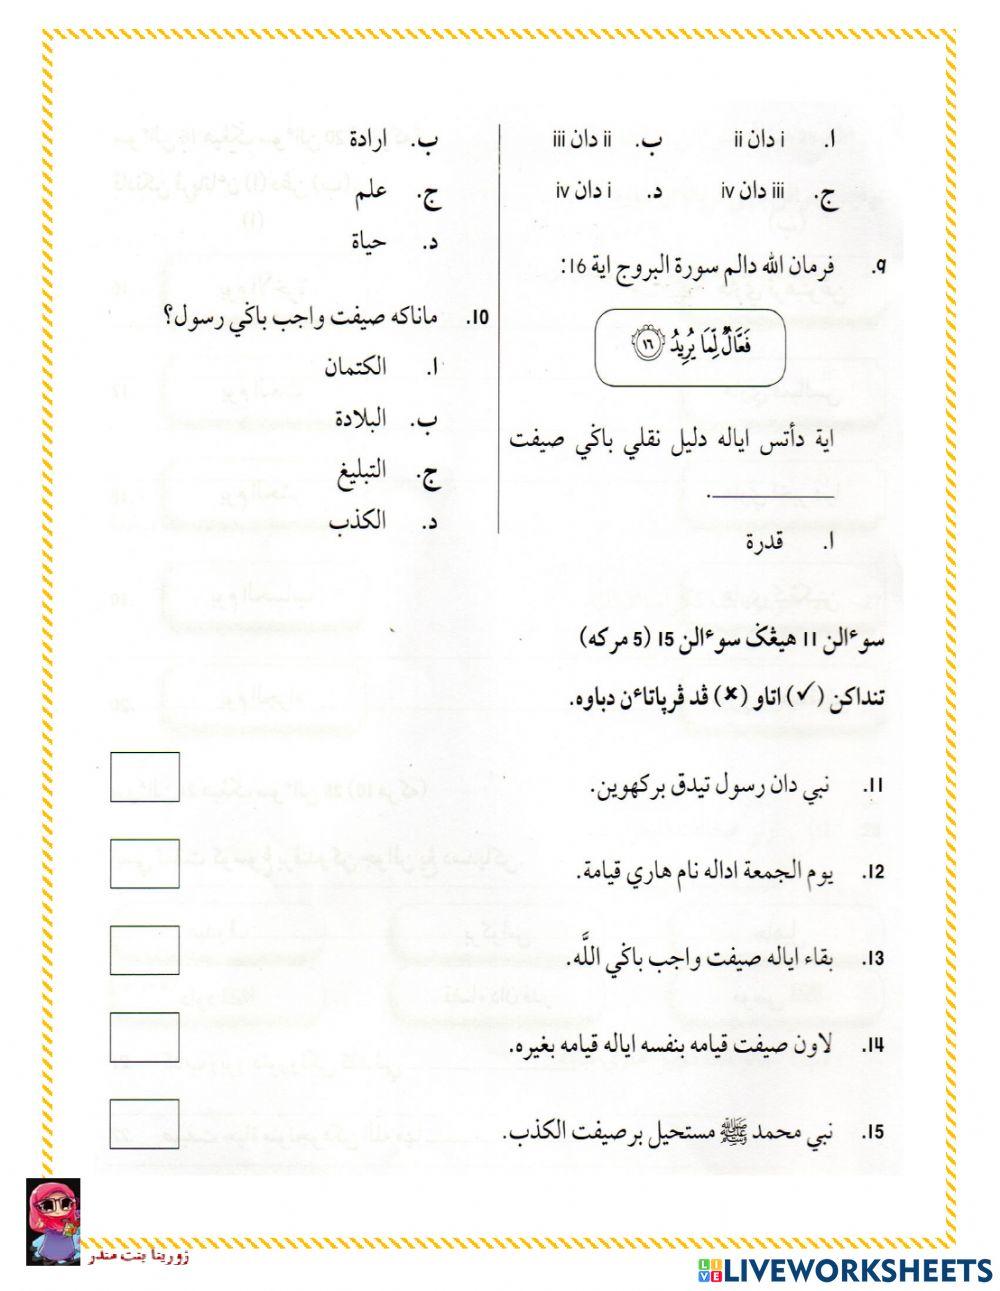 ا. i دان ii ب. ii دان iii
ج. iii دان iv د. i دان iv
٩. فرمان الله دالم سورة البروج اية 16:
فَعَّالٌ لِّمَا يُرِيدُ ١٦
اية دأتس اياله دليل نقلي باݢي صيفت
________.
ا. قدرة
ب. ارادة
ج. علم
د. حياة
10. ماناكه صيفت واجب باݢي رسول؟
ا. الكتمان
ب. البلادة
ج. التبليغ
د. الكذب
سوءالن 11 هيڠݢ سوءالن 15 (5 مركه)
تنداكن (✓) اتاو (✗) ڤد ڤرڽاتاءن دباوه.
11. نبي دان رسول تيدق بركهوين.
12. يوم الجمعة اداله نام هاري قيامة.
13. بقاء اياله صيفت واجب باݢي اللَّه.
14. لاون صيفت قيامه بنفسه اياله قيامه بغيره.
15. نبي محمد ﷺ مستحيل برصيفت الكذب.
زورينا بنت مندر
LIVEWORKSHEETS